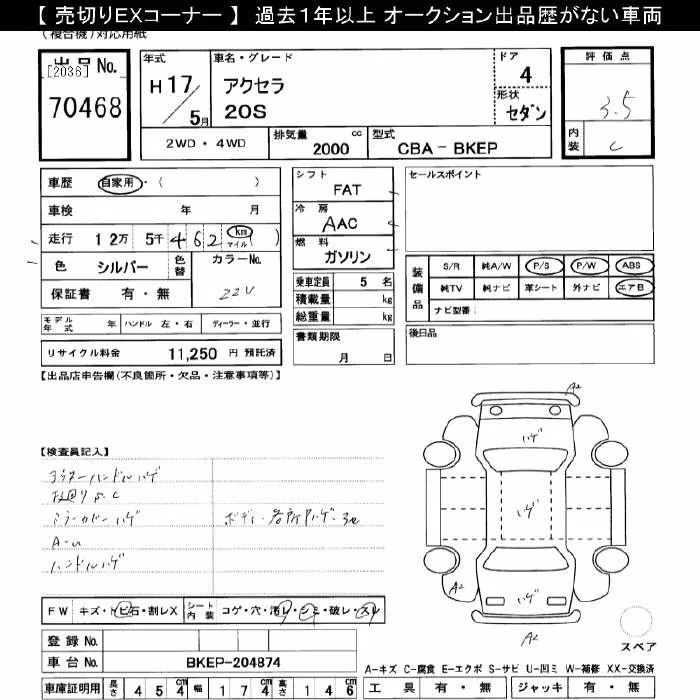 【 売切りEXコーナー 】 過去1年以上 オークション出品歴がない車両
(複合機)対応用紙
出品 No.
[2036]
70468
年式
H 17/5月
車名・グレード
アクセラ
20S
ドア
4
形状
セダン
評価点
3.5
内装
C
2WD・4WD
排気量
2000 cc
型式
CBA - BKEP
車歴 自家用・( )
車検 年 月
走行 12万 5千 462 km マイル ( )
色 シルバー 色替
カラーNo.
22V
保証書 有・無
モデル年式 年 ハンドル 左・右 ディーラー・並行
リサイクル料金 11,250 円 預託済
シフト
FAT
冷房
AAC
燃料
ガソリン
乗車定員 5 名
積載量 kg
総重量 kg
書類期限
月 日
セールスポイント
装備品
S/R 純A/W P/S P/W ABS
純TV 純ナビ 革シート 外ナビ エアB
ナビ型番:
後日品
【出品店申告欄(不良箇所・欠品・注意事項等)】
【検査員記入】
ハンドルハゲ
ミラーカバーハゲ
A-U
ハンドルハゲ
ボディ各所ハゲ
A2
ハゲ
ハゲ
ハゲ
A2
A2
スペア
FW キズ・トビ石・割レX シート内装 コゲ・穴・汚レ・シミ・破レ・スレ
登録 No.
車台 No. BKEP-204874
車庫証明用 長さ 454 cm 幅 174 cm 高さ 146 cm
A-キズ C-腐食 E-エクボ S-サビ U-凹ミ W-補修 XX-交換済
工具 有・無 ジャッキ 有・無